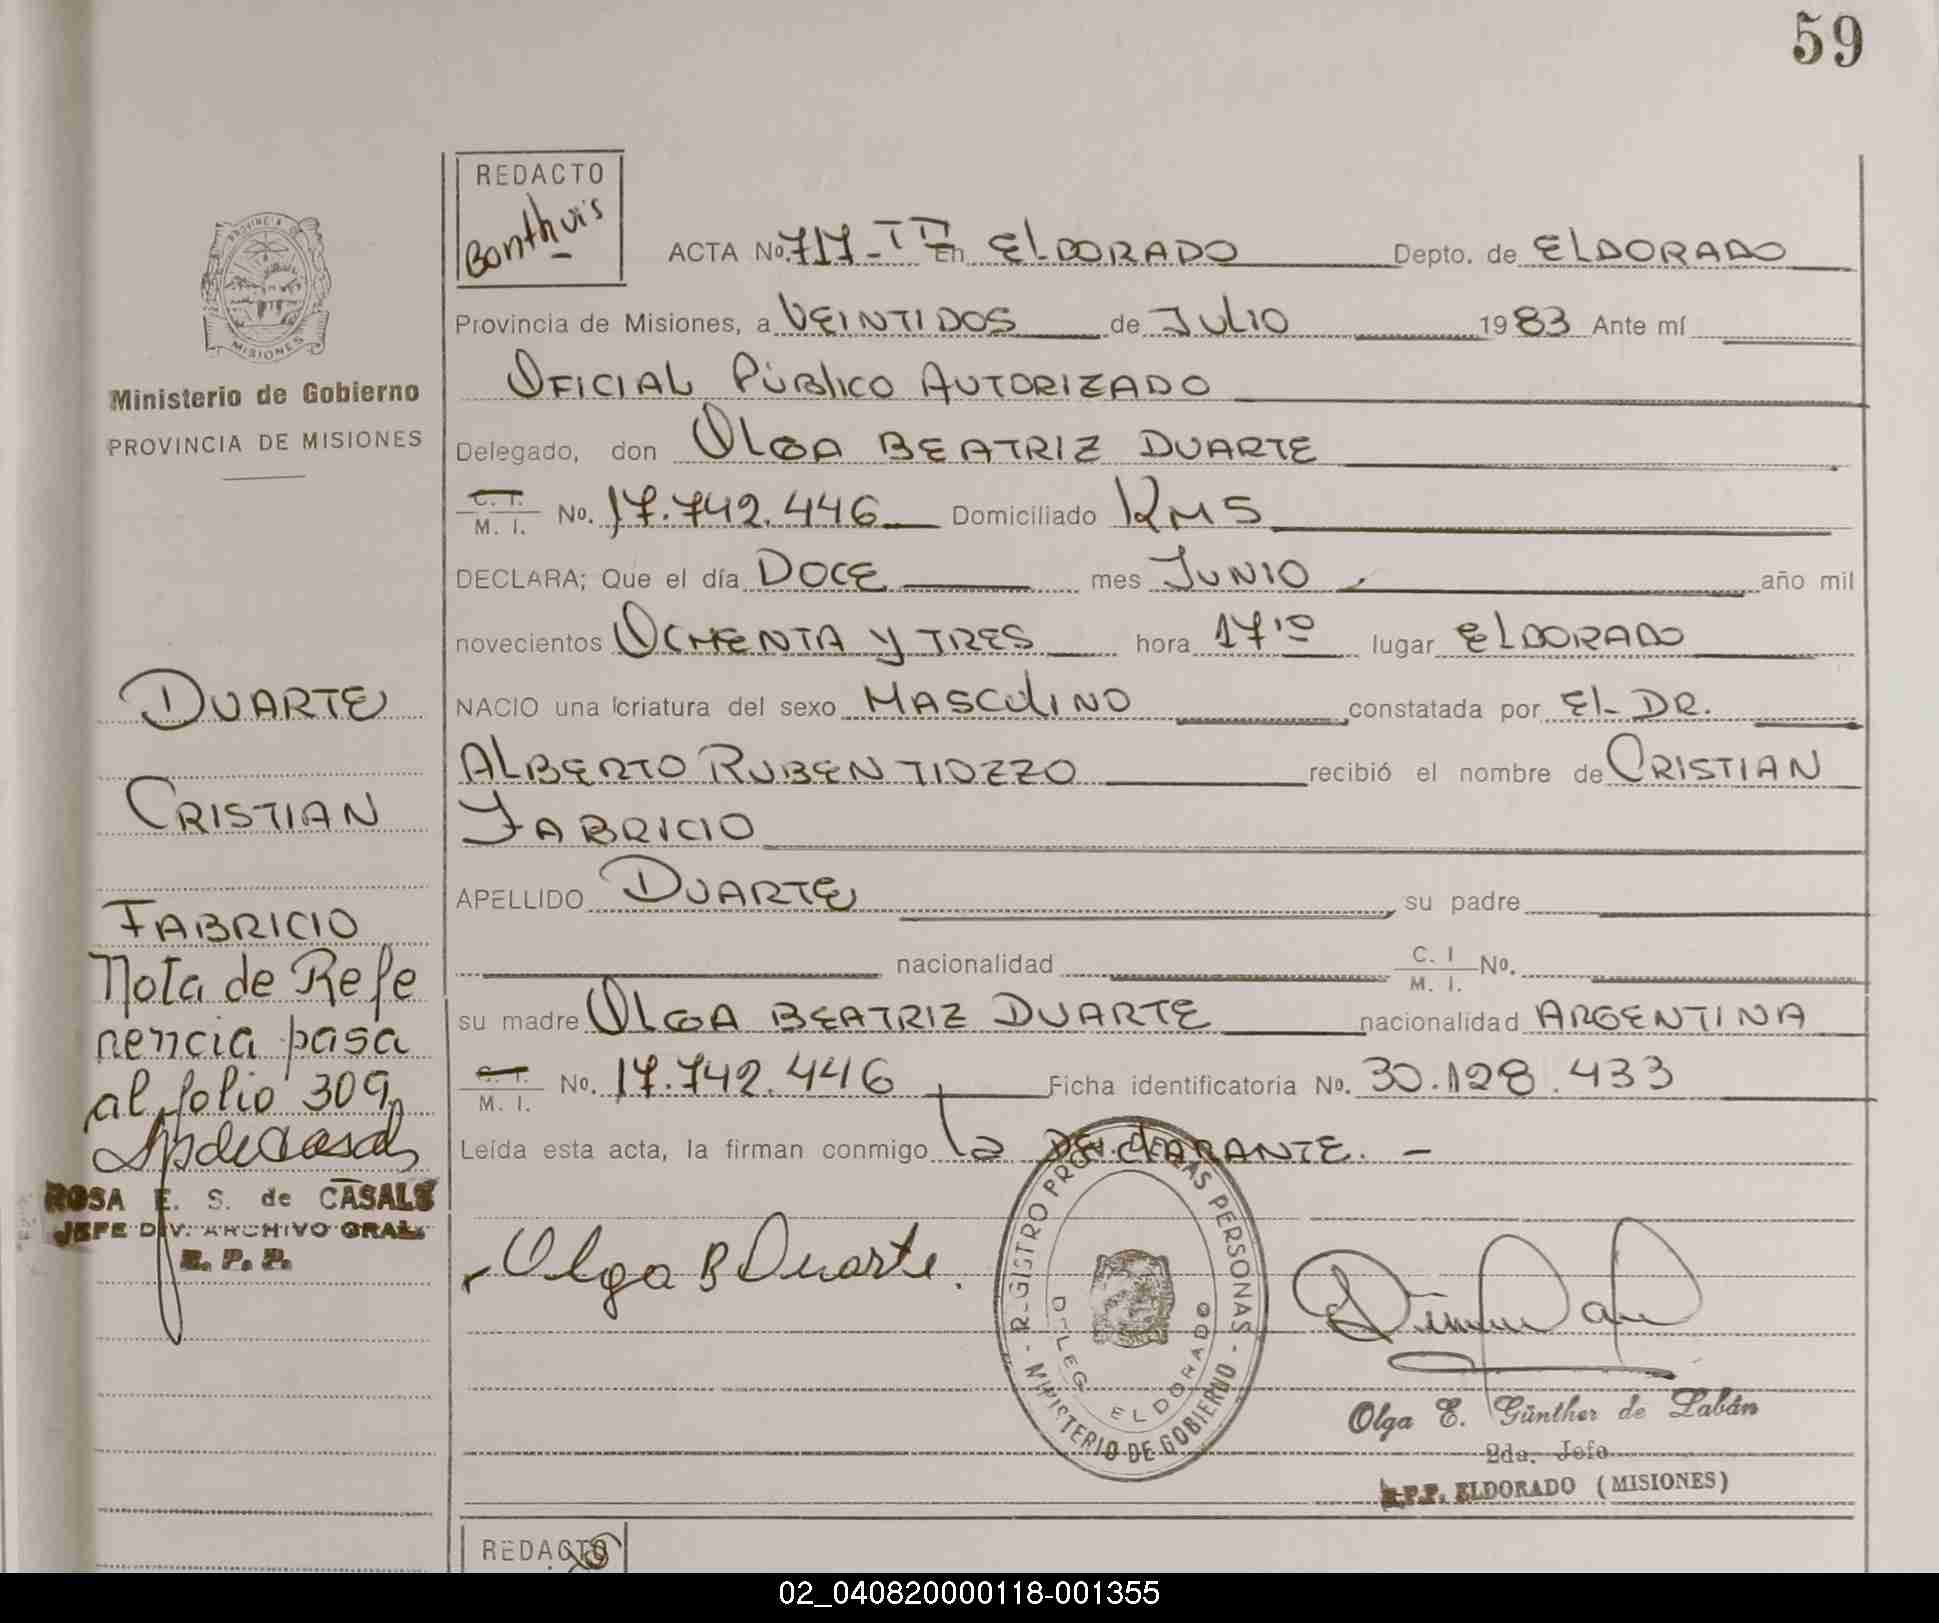 59
REDACTO
Bonthuis
ACTA No. 717-TII En ELDORADO Depto. de ELDORADO
Provincia de Misiones, a VEINTIDOS de JULIO 1983 Ante mí
OFICIAL PÚBLICO AUTORIZADO
Delegado, don OLGA BEATRIZ DUARTE
C. I.
M. I. No. 17.742.446 Domiciliado KM 5
DECLARA; Que el día DOCE mes JUNIO año mil
novecientos OCHENTA Y TRES hora 17'0 lugar ELDORADO
NACIO una criatura del sexo MASCULINO constatada por EL DR.
ALBERTO RUBEN TIOZZO recibió el nombre de CRISTIAN
FABRICIO
APELLIDO DUARTE su padre
nacionalidad C. I
M. I. No.
su madre OLGA BEATRIZ DUARTE nacionalidad ARGENTINA
C. I.
M. I. No. 17.742.446 Ficha identificatoria No. 30.128.433
Leída esta acta, la firman conmigo la DECLARANTE. -
Olga B Duarte.
REGISTRO PROV. DE LAS PERSONAS - MINISTERIO DE GOBIERNO -
DELEG. ELDORADO
Olga E. Günther de Labán
2da. Jefe
R.P.P. ELDORADO (MISIONES)
REDACTO
PROVINCIA DE
MISIONES
Ministerio de Gobierno
PROVINCIA DE MISIONES
DUARTE
CRISTIAN
FABRICIO
Nota de Refe
rencia pasa
al folio 309
ROSA E. S. de CASALS
JEFE DIV. ARCHIVO GRAL.
R. P. P.
02_040820000118-001355